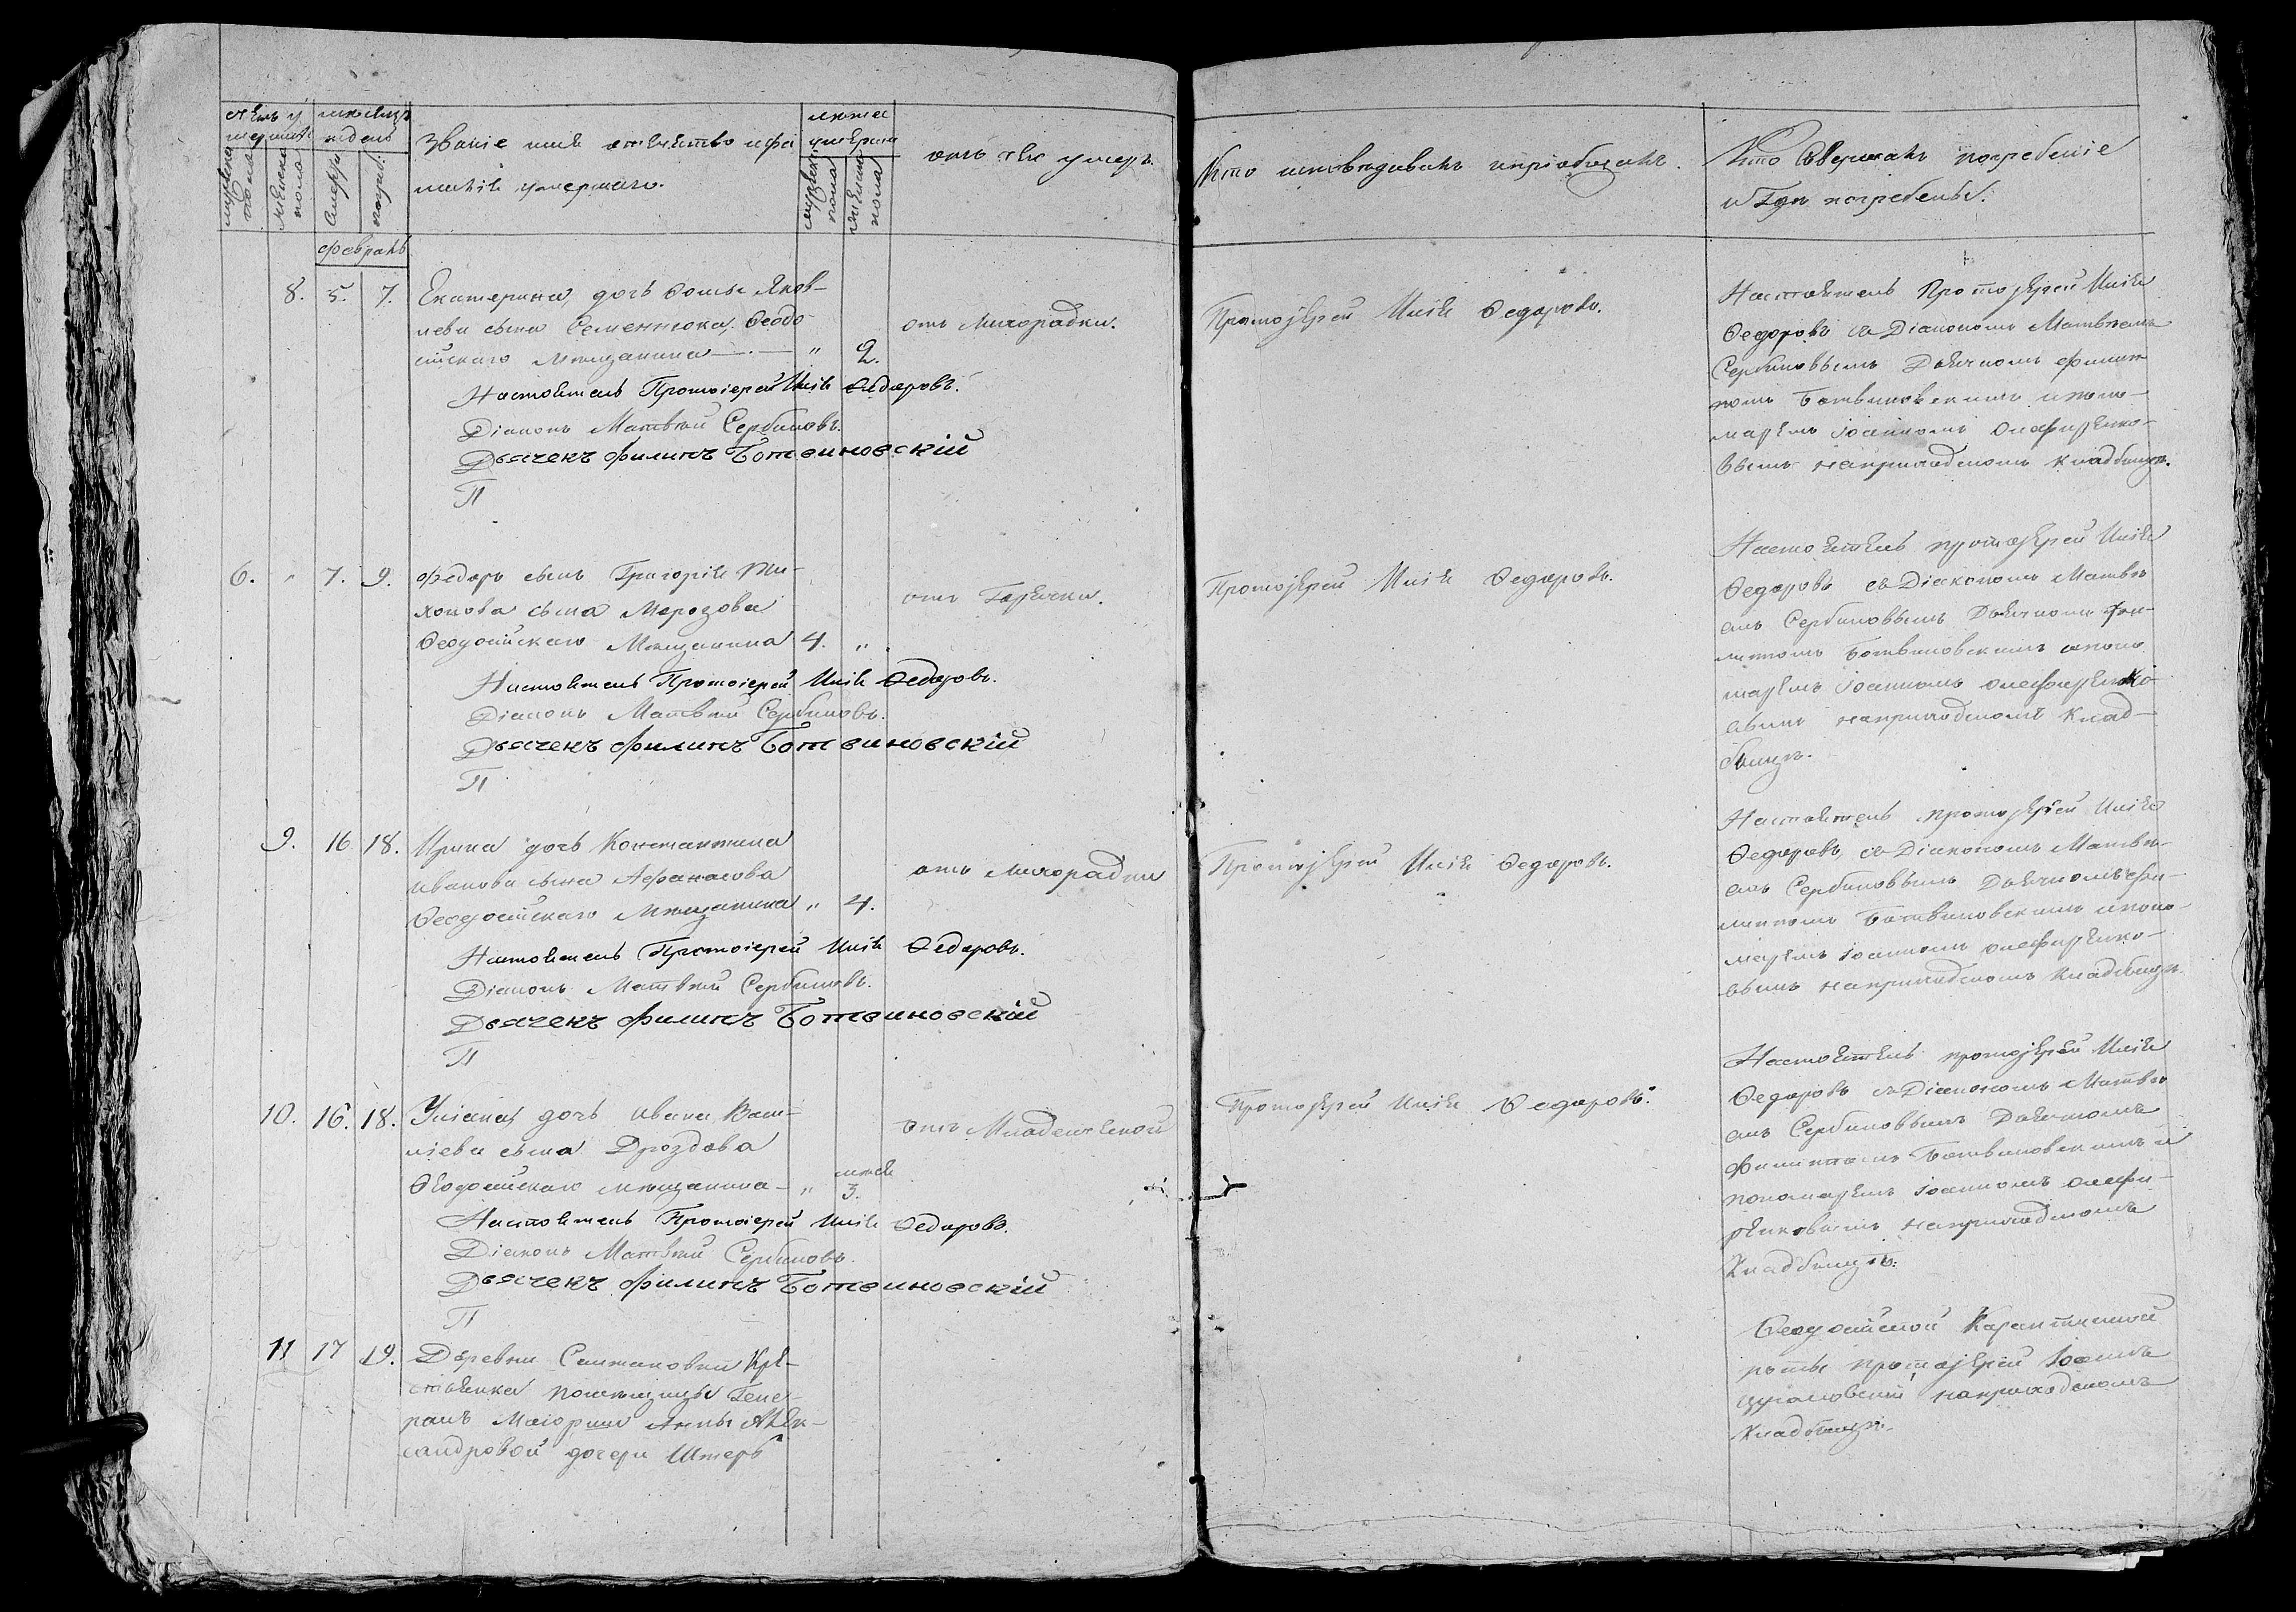 Счетъ у
мершихъ
мужеска
пола
женска
пола
мѣсяцъ
и день
смерти
погреб.
Званіе имя отечество и фа
милія умершаго.
лѣта
умершаго
мужеска
пола
женска
пола
отъ чего умеръ
Кто исповѣдывалъ и пріобщалъ.
Кто Совершалъ погребеніе
и Гдѣ погребены.
февраль
8. 5. 7.
Екатерина, дочь Фомы Яков-
лева сына Семенюка, Ѳеодо
сійскаго мѣщанина — „ 2.
отъ лихорадки.
Протоіерей Илія Ѳедоровъ.
Настоятель Протоіерей Илія
Ѳедоровъ съ Діакономъ Матвѣемъ
Сербиновымъ Дьячкомъ Филип
помъ Ботвиновскимъ и поно-
маремъ Іоанномъ Олефиренко-
вымъ на приходскомъ кладбищѣ.
Настоятель Протоіерей Илія Ѳедоровъ.
Діаконъ Матвѣй Сербиновъ.
Дьячекъ Филипъ Ботвиновскій
П
6. „ 7. 9.
Федоръ сынъ Григорія Ти-
хонова сына Морозова
Ѳеодосійскаго Мѣщанина 4. „
отъ Горячки.
Протоіерей Илія Ѳедоровъ.
Настоятель протоіерей Илія
Ѳедоровъ съ Діакономъ Матвѣ
емъ Сербиновымъ Дьячкомъ Фи-
липомъ Ботвиновскимъ и поно
маремъ Іоанномъ Олефиренко-
вымъ на приходскомъ Клад-
бищѣ.
Настоятель Протоіерей Илія Ѳедоровъ.
Діаконъ Матвѣй Сербиновъ.
Дьячекъ Филипъ Ботвиновскій
П
9. 16. 18.
Ирина дочь Константина
Иванова сына Афанасова
Ѳеодосійскаго Мѣщанина „ 4.
отъ лихорадки
Протоіерей Илія Ѳедоровъ.
Настоятель протоіерей Илія
Ѳедоровъ, съ Діакономъ Матвѣ-
емъ Сербиновымъ Дьячкомъ Фи-
липомъ Ботвиновскимъ и поно-
маремъ Іоанномъ Олефиренко-
вымъ на приходскомъ Кладбищѣ.
Настоятель Протоіерей Илія Ѳедоровъ.
Діаконъ Матвѣй Сербиновъ.
Дьячекъ Филипъ Ботвиновскій
П
10. 16. 18.
Уліана, дочь Ивана Васи-
ліева сына Дроздова
Ѳеодосійскаго мѣщанина — „ 3.
отъ Младенческой
Протоіерей Илія Ѳедоровъ.
Настоятель протоіерей Илія
Ѳедоровъ съ Діакономъ Матвѣ
емъ Сербиновымъ Дьячкомъ
Филиппомъ Ботвиновскимъ и
пономаремъ Іоанномъ Олефи-
ренковымъ на приходскомъ
Кладбищѣ.
Настоятель Протоіерей Илія Ѳедоровъ.
Діаконъ Матвѣй Сербиновъ.
Дьячекъ Филипъ Ботвиновскій
П
11 17 19.
Деревни Салтановки Кре-
стьянка помѣщицы Гене-
ралъ Маіорши Анны Алек-
сандровой дочери Штеръ
Ѳеодосійской Карантинной
роты протоіерей Іоаннъ
на приходскомъ
Кладбищѣ.